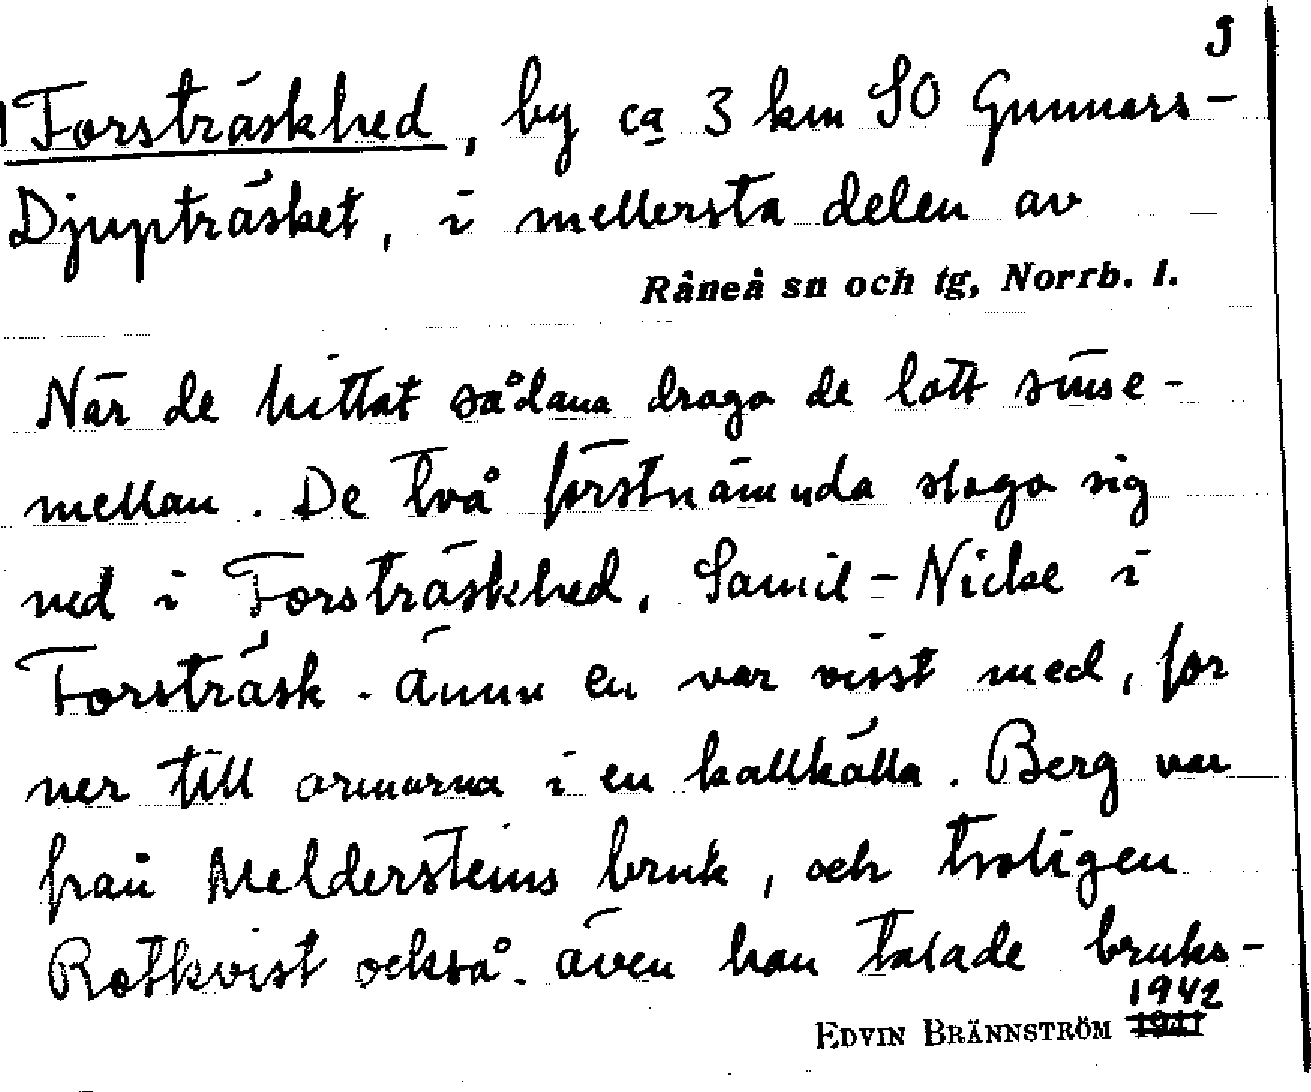 3
Forsträskhed, by ca 3 km SO Gunnars-
Djupträsket, i mellersta delen av
Råneå sn och tg, Norrb. l.
När de hittat sådana drogo de lott sinse-
mellan. De två förstnämnda slogo sig
ned i Forsträskhed, Samil-Nicke i
Forsträsk. Ännu en var visst med, for
ner till ormarna i en kallkälla. Berg var
från Meldersteins bruk, och troligen
Rotkvist också. även han talade bruks-
1942
EDVIN BRÄNNSTRÖM 1941